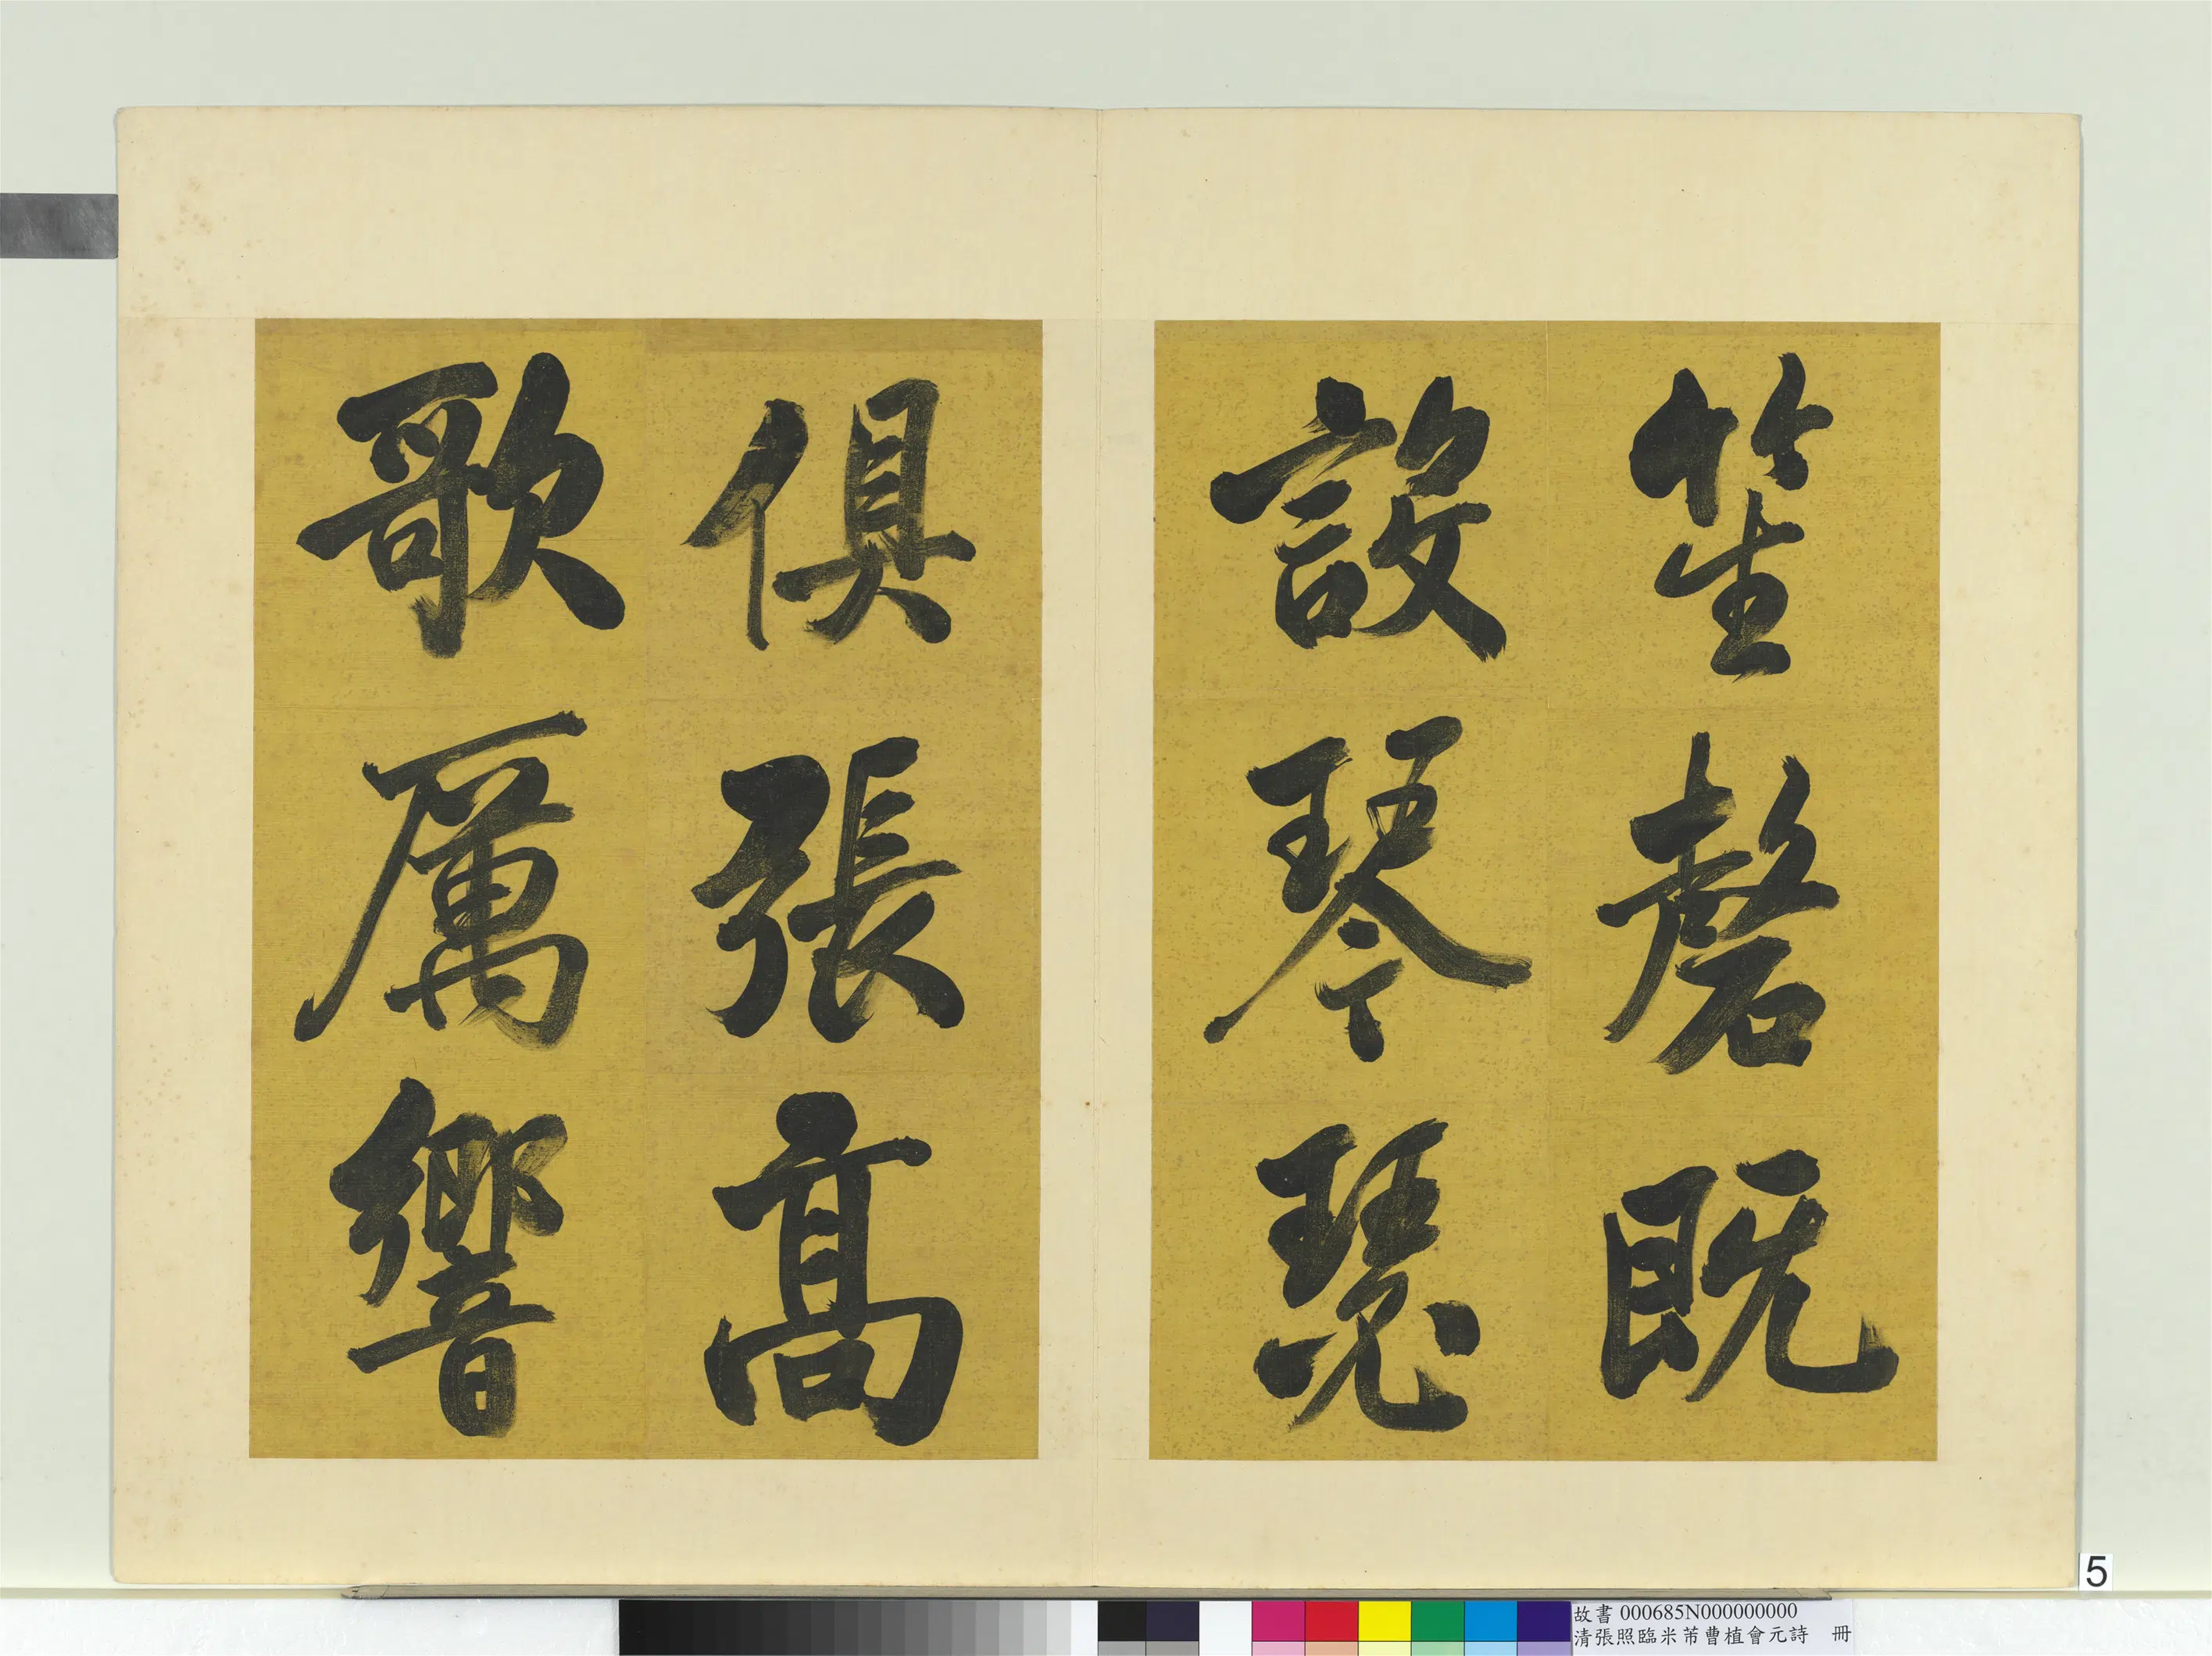 笙磬既
設琴瑟
俱張高
歌厲響
5
故書 000685N000000000
清張照臨米芾曹植會元詩 冊